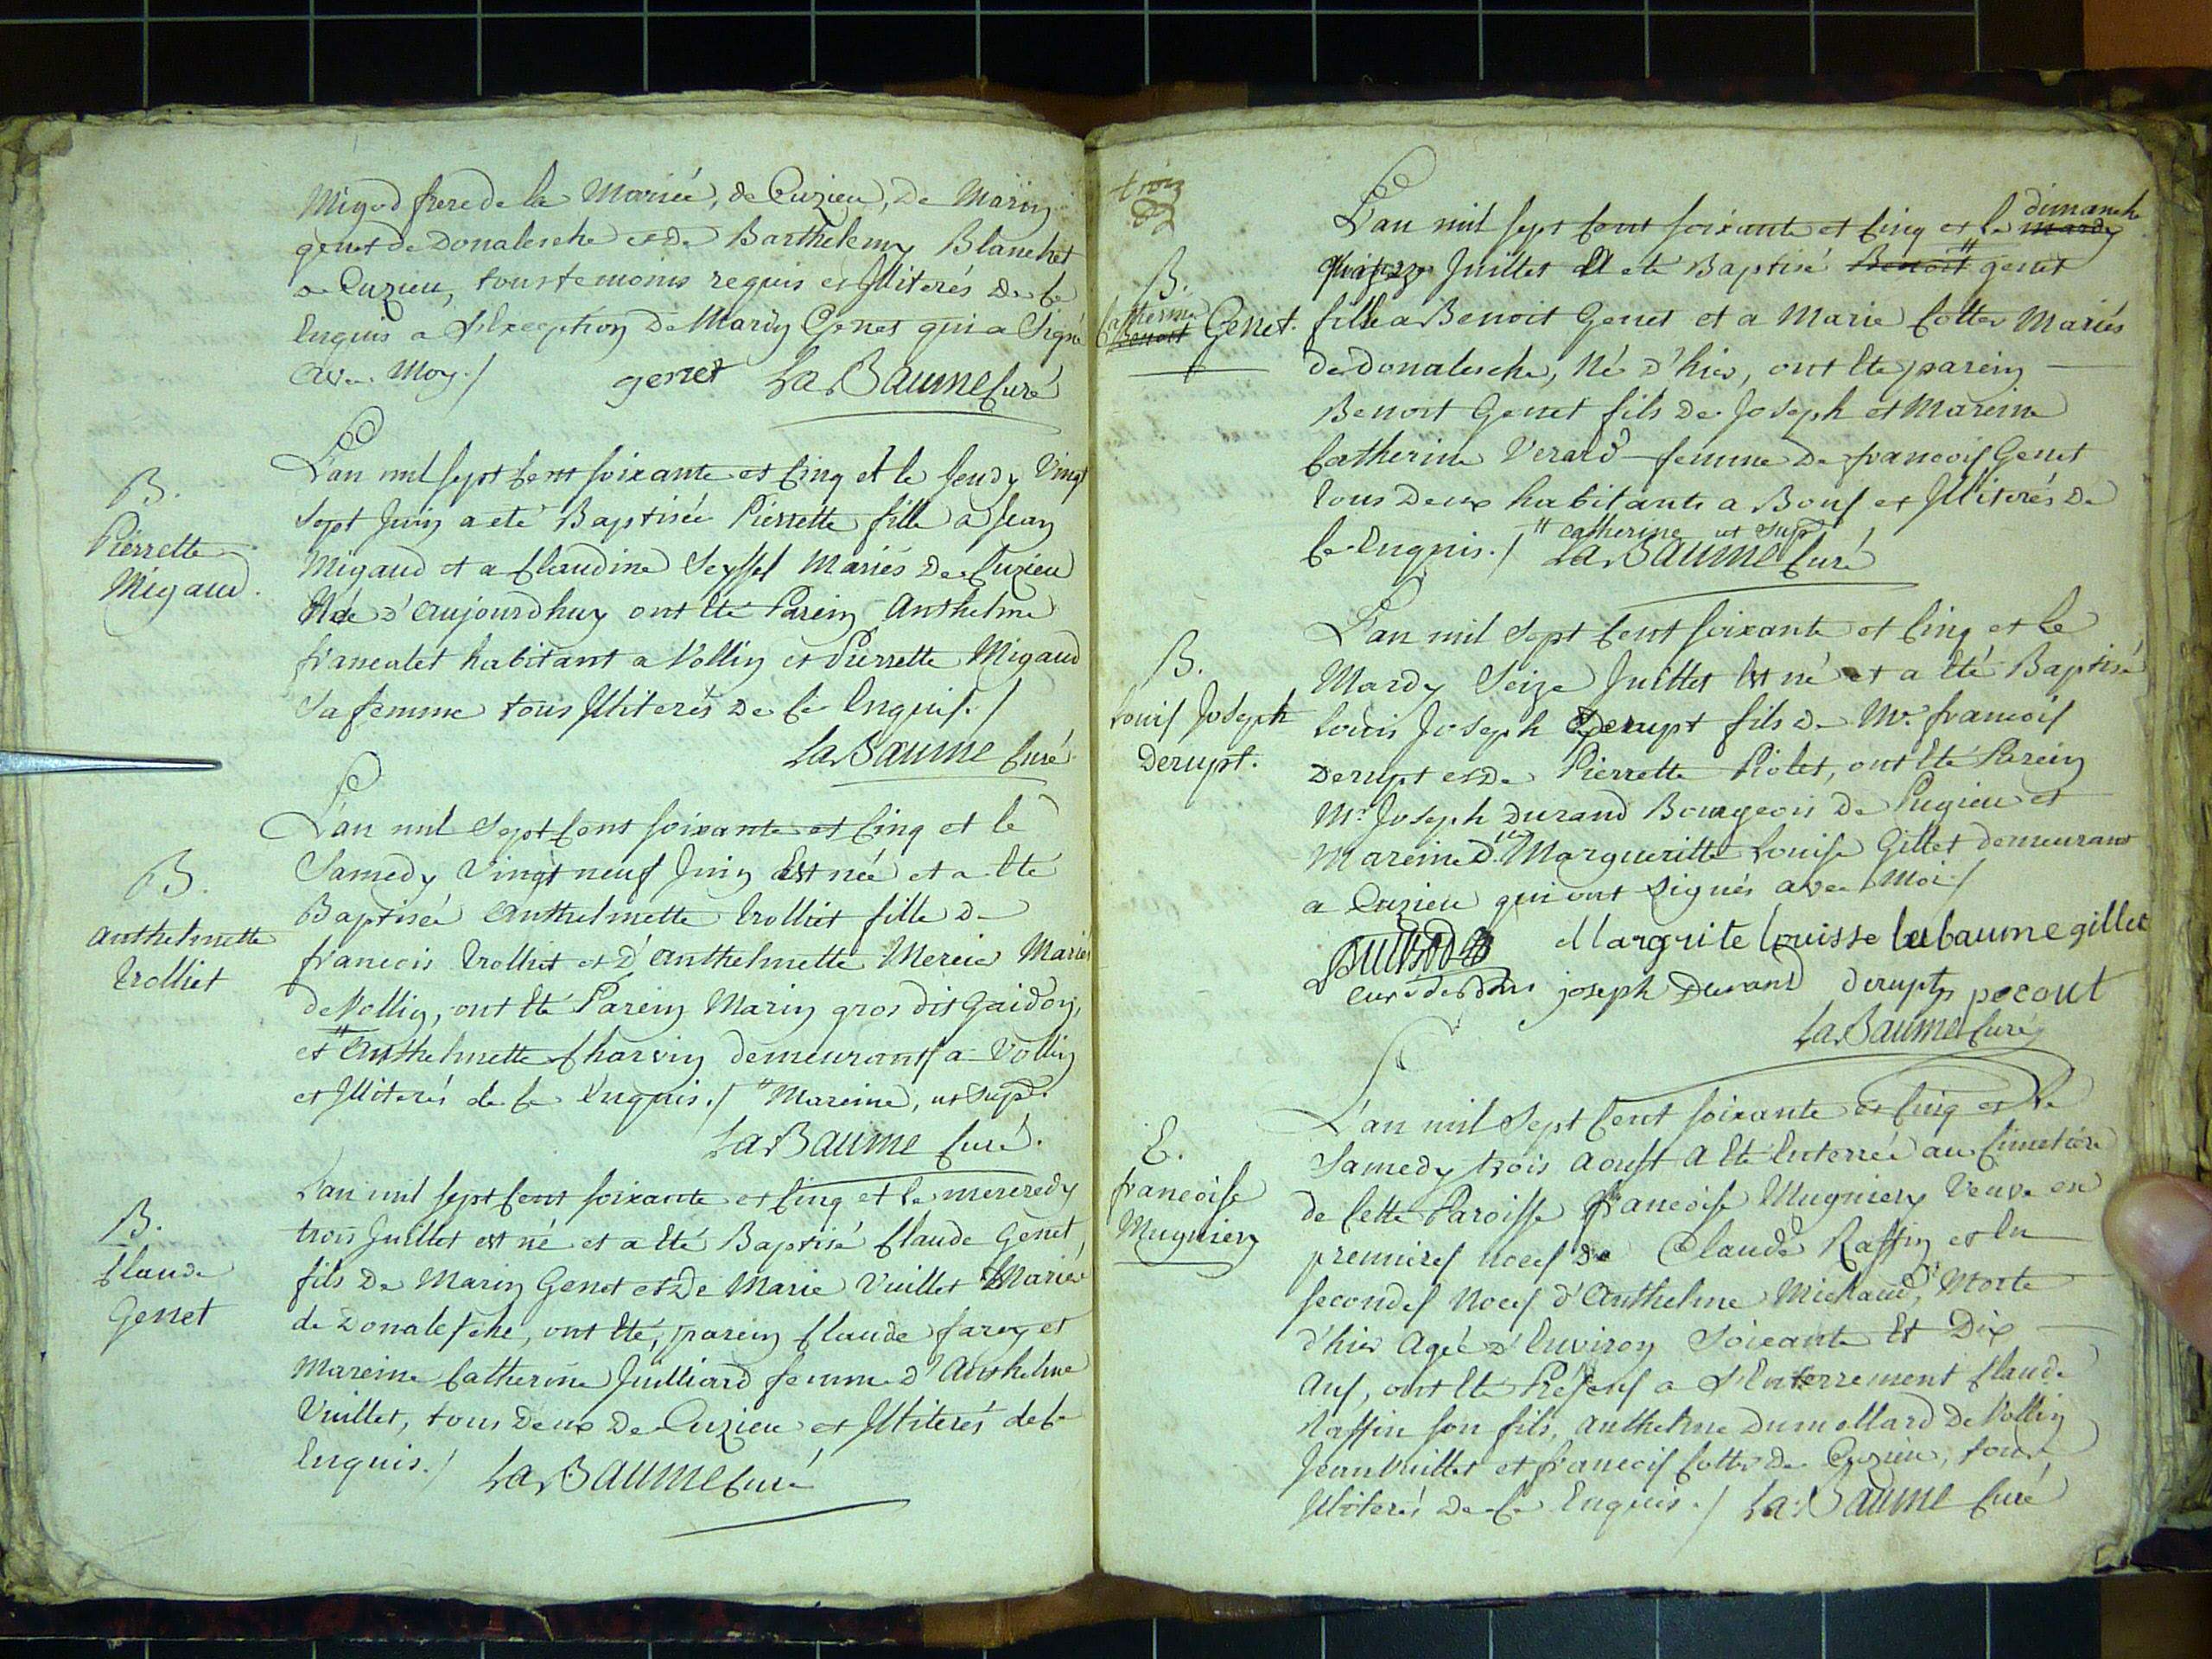 Migod frere de la Mariée, de Cuzieu, De Marin
genet de Donalesche et de Barthelemy Blanchet
de Cuzieu, tous temoins requis et Illiterés de ce
Enquis a L'Exception de Marin Genet qui a Signé
avec Moy./ genet La Baume Curé
B.
Pierrette
Migaud.
L'an mil sept Cent soixante et Cinq et le Jeudy Vingt
sept Juin a eté Baptisée Pierrette fille a Jean
Migaud et a Claudine Seyssel Mariés de Cuzieu
Née d'aujourdhuy ont Eté Parein Anthelme
francalet habitant a Vollin et Pierrette Migaud
Sa femme tous Illiterés de ce Enquis./
La Baume Curé
B.
anthelmette
trolliet
L'an mil Sept Cent soixante et Cinq et le
Samedy Vingt neuf Juin Est née et a Eté
Baptisée Anthelmette trolliet fille de
francois trolliet et d'anthelmette Mercier Mariés
de Vollin, ont Eté Parein Marin gros dit Gaidon,
et # Anthelmette Charvin demeurants a Vollin
et Illiterés de ce Enquis./ # Mareine, ut sup.
La Baume Curé.
B.
Claude
Genet
L'an mil sept Cent soixante et Cinq et le mercredy
trois Juillet est né et a Eté Baptisé Claude Genet,
fils de Marin Genet et de Marie Vuillet Mariés
de Donalesche, ont Eté, parein Claude farey et
Mareine Catherine Juilliard femme d'Anthelme
Vuillet, tous Deux de Cuzieu et Illiterés de ce
Enquis./ La Baume Curé
trois
B.
Catherine
Benoit Genet.
L'an mil sept Cent soixante et Cinq et le mardy dimanche
Juillet a eté Baptisé Benoit # genet
fille a Benoit Genet et a Marie Cotter Mariés
de donalesche, Né d'hier, ont Ete parein
Benoit Genet fils de Joseph et Mareine
Catherine Verard femme de francois Genet
tous Deux habitants a Bons et Illiterés de
ce Enquis./ # catherine ut sup
La Baume Curé
B.
Louis Joseph
Derupt.
L'an mil Sept Cent soixante et Cinq et le
Mardy Seize Juillet Est né et a Eté Baptisé
Louis Joseph Derupt fils de Mr. francois
Derupt et de Pierrette Piolet, ont Eté Parein
Mr. Joseph Durand Bourgeois de Pugieu et
Mareine dlle Margueritte Louise Gillet demeurant
a Cuzieu qui ont Signés avec Moi./
Margrite louisse labaume gillet
joseph Durand derupt pocout
La Baume Curé
E.
francoise
Mugniery
L'an mil Sept Cent soixante et Cinq et le
Samedy trois aoust a Eté Enterrée au Cimetiere
de Cette Paroisse francoise Mugniery Veuve en
premieres noces de Claude Raffin et En
secondes Noces d'Anthelme Michaud, Morte
d'hier agée d'Environ Soixante Et Dix
Ans, ont Eté Présens a L'Enterrement Claude
Raffin son fils, anthelme Dumollard de Vollin
Jean Vuillet et francois Cotter de Cuzieu, tous
Illiterés de ce Enquis./ La Baume Curé